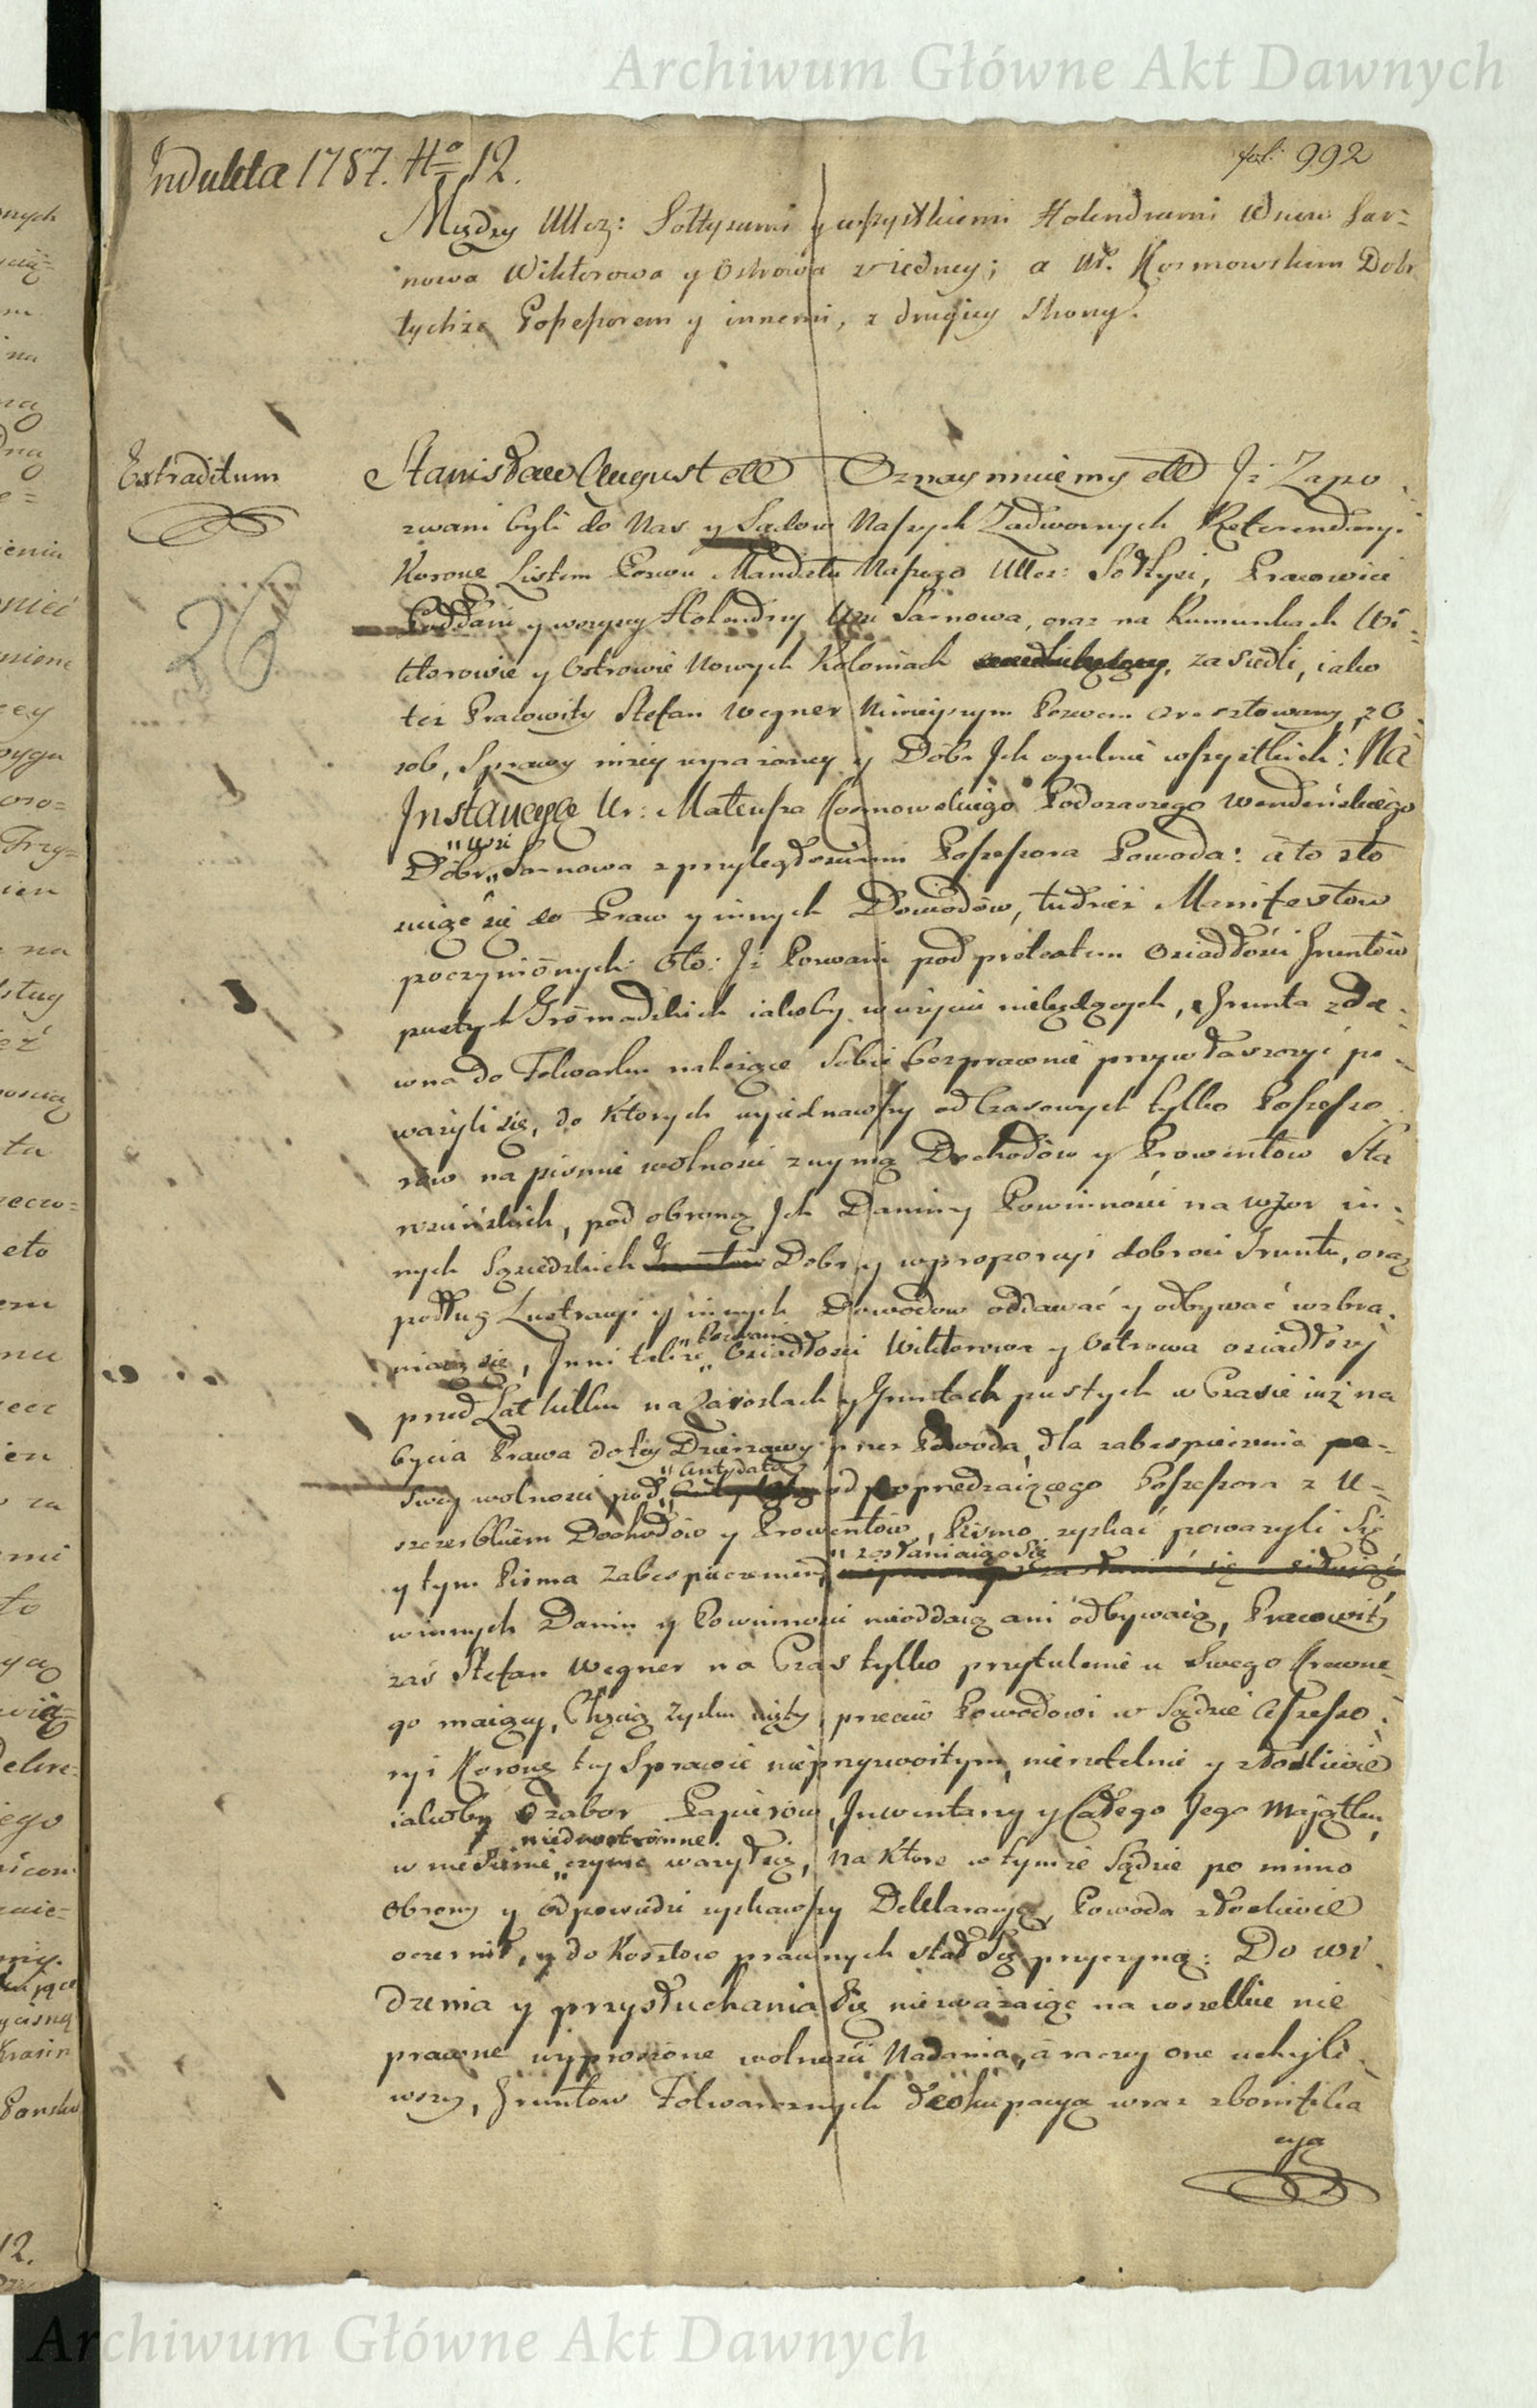 Archiwum Główne Akt Dawnych
Indukta 1787. No 12.
fol: 992
Między Ucz: Sołtysami y wszystkiemi Holendrami Wsiow Sar-
nowa Wiktorowa y Ostrowa z iedney; a Ur. Kosmowskim Dobr
tychże Possessorem y innemi, z drugiey Strony.
Extraditum
26
Stanisław August etc Oznaymuiemy etc Iż Zapo
zwani byli do Nas y Sądow Naszych Zadwornych Referendaryi
Koronę Listem Pozwu Mandatu Naszego Ucz: Sołtysi, Pracowici
Poddani y wszyscy Holendrzy Wsi Sarnowa, oraz na Rumunkach Wi-
ktorowie y Ostrowie Nowych Koloniach zasiedli, iako
też Pracowity Stefan Wegner Ninieyszym Pozwem aresztowany, z O
sob, Sprawy niżey wyrażoney y Dobr Ich ogulnie wszystkich: Na
Instancyę Ur: Mateusza Kosmowskiego Podczaszego Wendeńskiego
„Wsi
Dóbr„ Sarnowa z przyległosciami Possessora Powoda: a to sto
suiąc się do Praw y innych Dowodów, tudzież Manifestow
poczynionych: Oto: Iż Pozwani pod pretextem Osiadłości Gruntów
pustych Gromadzkich iakoby w użyciu niebędących, Grunta zda-
wna do Folwarku należące Sobie bezprawnie przywłaszczyć po-
ważyli się, do Ktorych wyiednawszy od Czasowych tylko Possesso
row na pismie wolnosci z uymą Dochodów y Prowentow Sta
rościńskich, pod obroną Ich Daniny Powinności na wzor in-
nych Sąsiedzkich Dobr y wproporcyi dobroci Gruntu, oraz
podług Lustracyi y innych Dowodow oddawać y odbywać wzbra-
„Pozwani
niaią się, Inni także„ Osiadłosci Wiktorowa y Ostrowa osiadłszy
przed Lat kilku na Zaroslach y Gruntach pustych w Czasie iuż na
bycia Prawa do tey Dzierzawy przez Powoda, dla zabespieczenia
„antydatą
Swey wolnosci pod„ od poprzedzaiącego Possessora z U-
szczerbkiem Dochodów y Prowentów, Pismo zyskać poważyli Się
„zasłaniaiąc się
y tym Pisma zabespieczeniem„
winnych Danin y Powinnosci nieoddaią ani odbywaią, Pracowity
zaś Stefan Wegner na Czas tylko przytulenie u Swego Krewne-
go maiący, Chęcią Zysku uięty, przeciw Powodowi w Sądzie Assesso-
ryi Koronę tey Sprawie nieprzyzwoitym, nierzetelnie y złosliwie
iakoby o zabor Papierow, Inwentarzy y Całego Jego Maiątku,
niedwostronne
w niesienie„ czynić ważył się, na Ktore w tymże Sądzie po mimo
Obrony y odpowiedzi zyskawszy Deklaracyą, Powoda złosliwie
oczernił, y do Kosztow prawnych stał Się przyczyną: Do wi-
dzenia y przysłuchania Się nieuważaiąc na wszelkie nie
prawne wyproszone wolności Nadania, a raczey one uchyli-
wszy, Gruntow Folwarcznych deokupacyą wraz z bonifika
cyą
Archiwum Główne Akt Dawnych